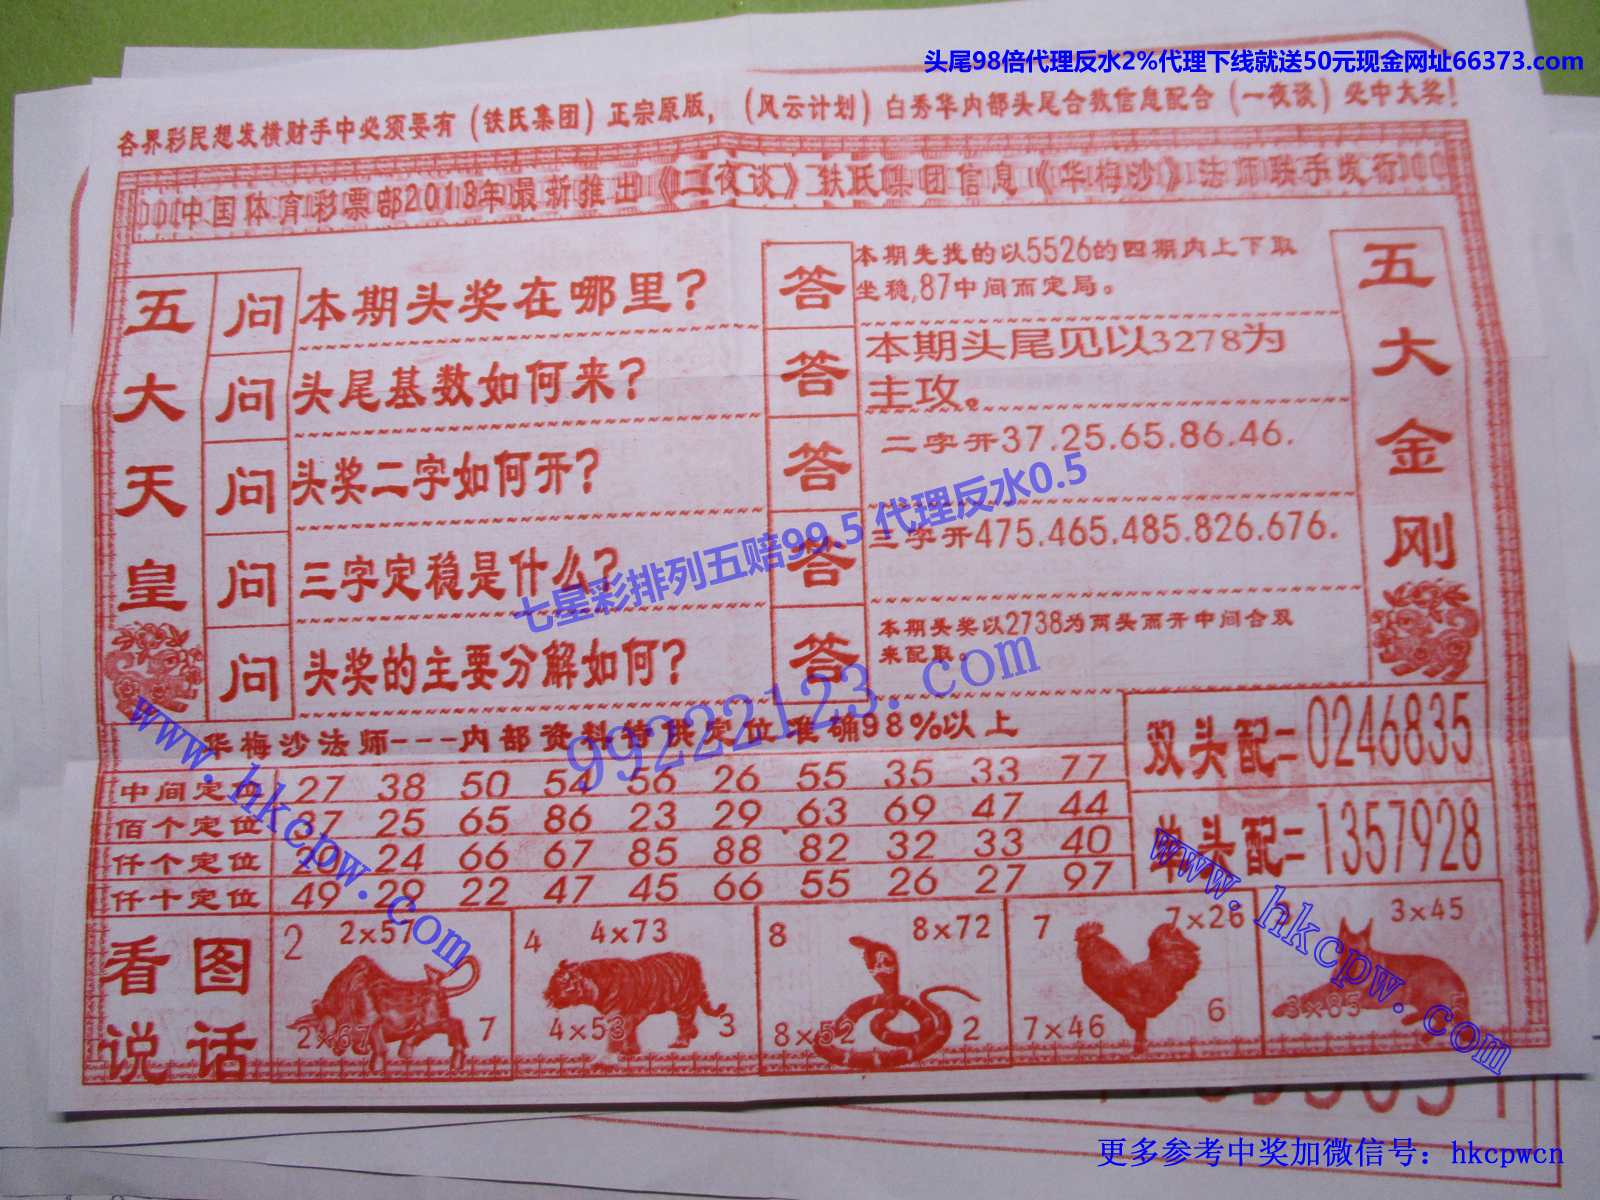 头尾98倍代理反水2%代理下线就送50元现金网址66373.com
各界彩民想发横财手中必须要有(铁氏集团)正宗原版,(风云计划)白秀华内部头尾合数信息配合(一夜谈)必中大奖!
中国体育彩票部2013年最新推出《一夜谈》铁氏集团信息《华梅沙》法师联手发行
五大天皇
问 本期头奖在哪里?
答 本期先找的以5526的四期内上下取
坐稳,87中间而定局。
问 头尾基数如何来?
答 本期头尾见以3278为
主攻。
问 头奖二字如何开?
答 二字开37.25.65.86.46.
问 三字定稳是什么?
答 三字开475.465.485.826.676.
问 头奖的主要分解如何?
答 本期头奖以2738为两头而开中间合双
来配取。
五大金刚
七星彩排列五赔99.5 代理反水0.5
99222123.com
华梅沙法师---内部资料特供定位准确98%以上
中间定位 27 38 50 54 56 26 55 35 33 77
佰个定位 37 25 65 86 23 29 63 69 47 44
仟个定位 20 24 66 67 85 88 82 32 33 40
仟十定位 49 29 22 47 45 66 55 26 27 97
双头配=0246835
单头配=1357928
www.hkcpw.com
www.hkcpw.com
看图
说话
2 2×57
2×67 7
4 4×73
4×53 3
8 8×72
8×52 2
7 7×26
7×46 6
3×45
3×85 5
更多参考中奖加微信号：hkcpwcn